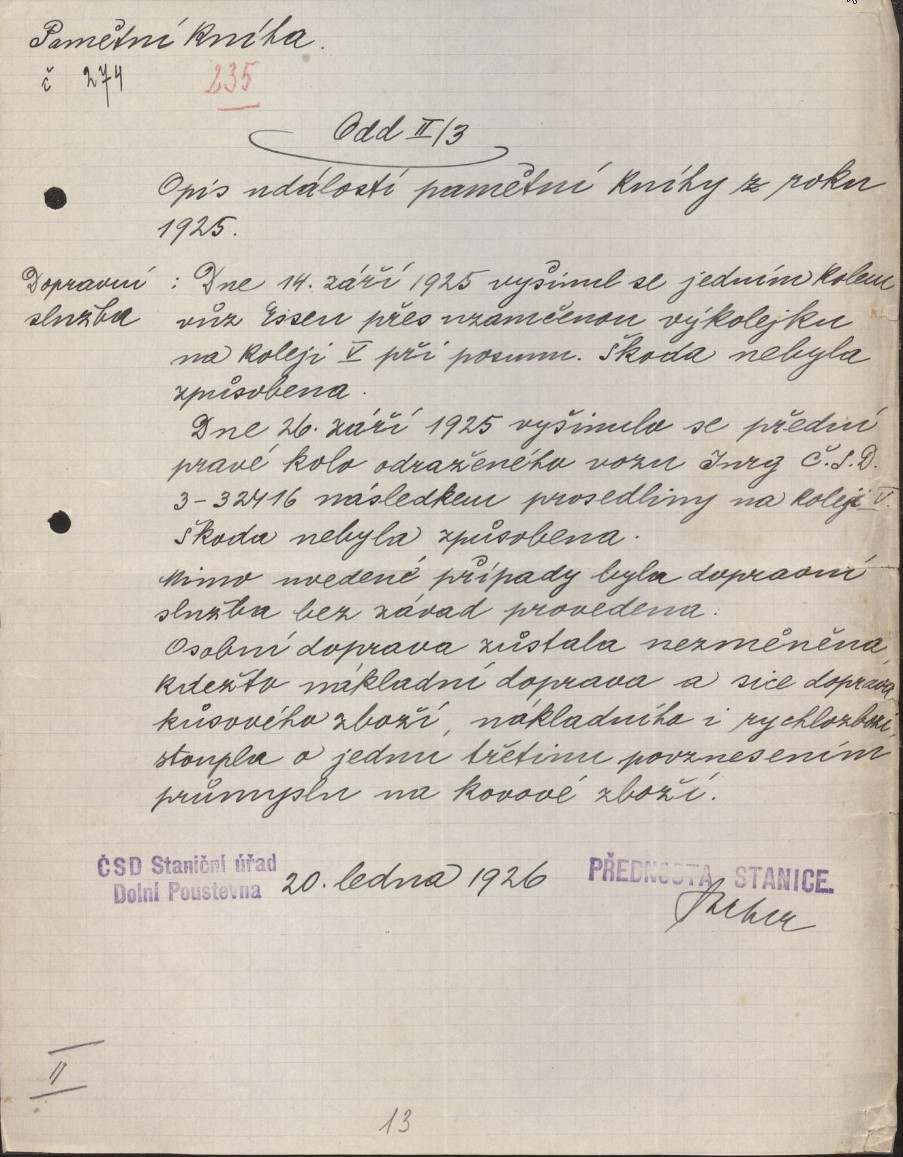 Pamětní kniha.
č 274 235
Odd II/3
Opis událostí pamětní knihy z roku
1925.
Dopravní : Dne 14. září 1925 vyšinul se jedním kolem
služba vůz Essen přes uzamčenou výkolejku
na koleji V při posunu. Škoda nebyla
způsobena.
Dne 26. září 1925 vyšinulo se přední
pravé kolo odraženého vozu Č.S.D.
3-32416 následkem prosedliny na koleji V.
Škoda nebyla způsobena.
Mimo uvedené případy byla dopravní
služba bez závad provedena.
Osobní doprava zůstala nezměněna,
kdežto nákladní doprava a sice doprava
kusového zboží, nákladního i rychlozboží,
stoupla o jednu třetinu povznesením
průmyslu na kovové zboží.
ČSD Staniční úřad
Dolní Poustevna
20. ledna 1926
PŘEDNOSTA STANICE.
II
13